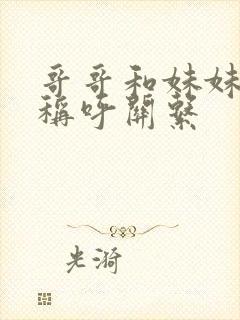 哥哥和妹妹
稱呼關系
光漪